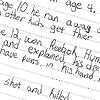 age 4.
age 10 he ran a way
other kids get this
e 12, won Reebok Hum
and explained his
have pens in his hand,
shot and killed